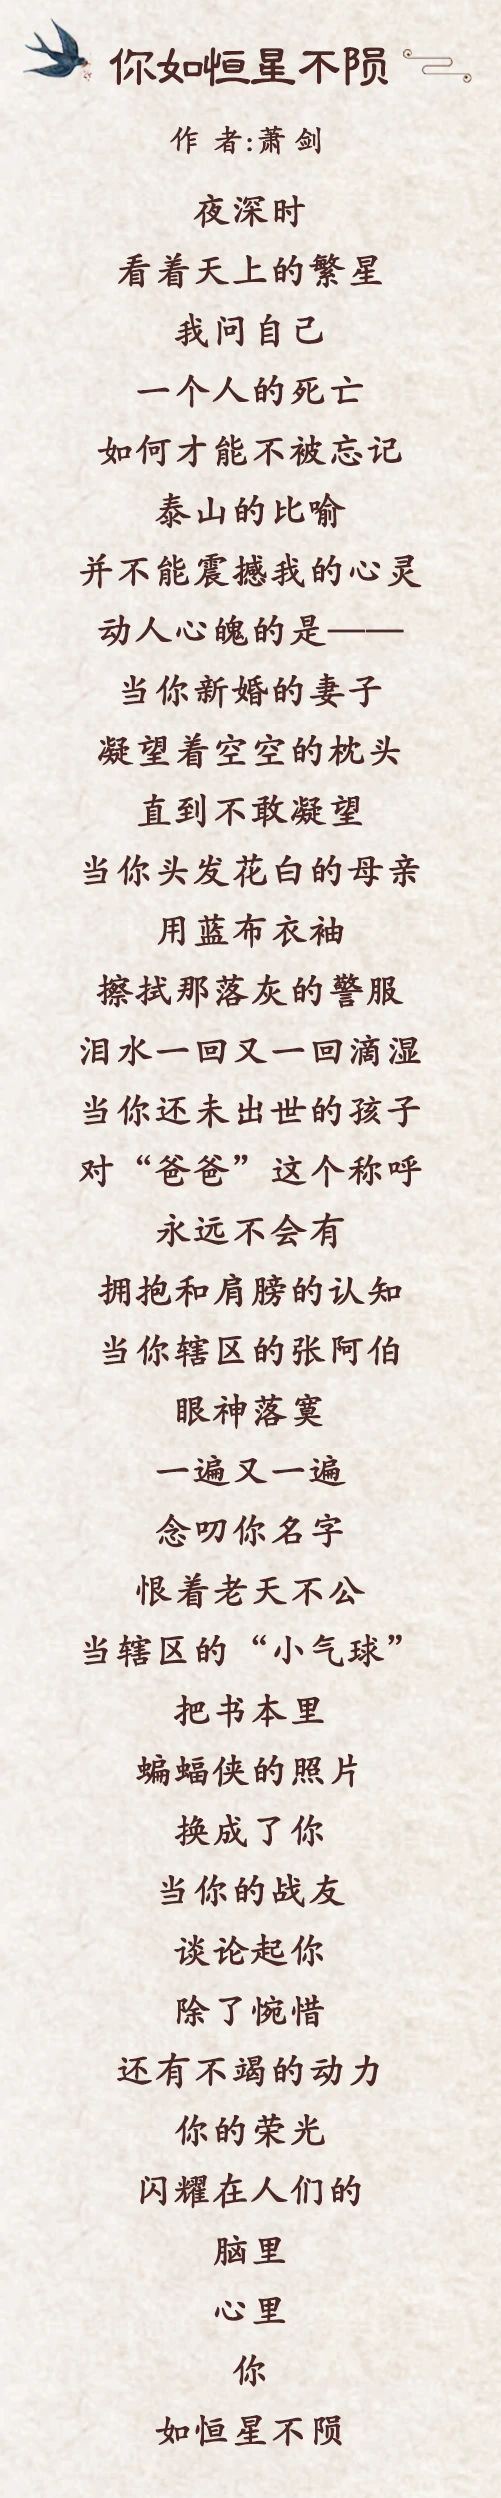 你如恒星不陨
作 者:萧剑
夜深时
看着天上的繁星
我问自己
一个人的死亡
如何才能不被忘记
泰山的比喻
并不能震撼我的心灵
动人心魄的是——
当你新婚的妻子
凝望着空空的枕头
直到不敢凝望
当你头发花白的母亲
用蓝布衣袖
擦拭那落灰的警服
泪水一回又一回滴湿
当你还未出世的孩子
对“爸爸”这个称呼
永远不会有
拥抱和肩膀的认知
当你辖区的张阿伯
眼神落寞
一遍又一遍
念叨你名字
恨着老天不公
当辖区的“小气球”
把书本里
蝙蝠侠的照片
换成了你
当你的战友
谈论起你
除了惋惜
还有不竭的动力
你的荣光
闪耀在人们的
脑里
心里
你
如恒星不陨